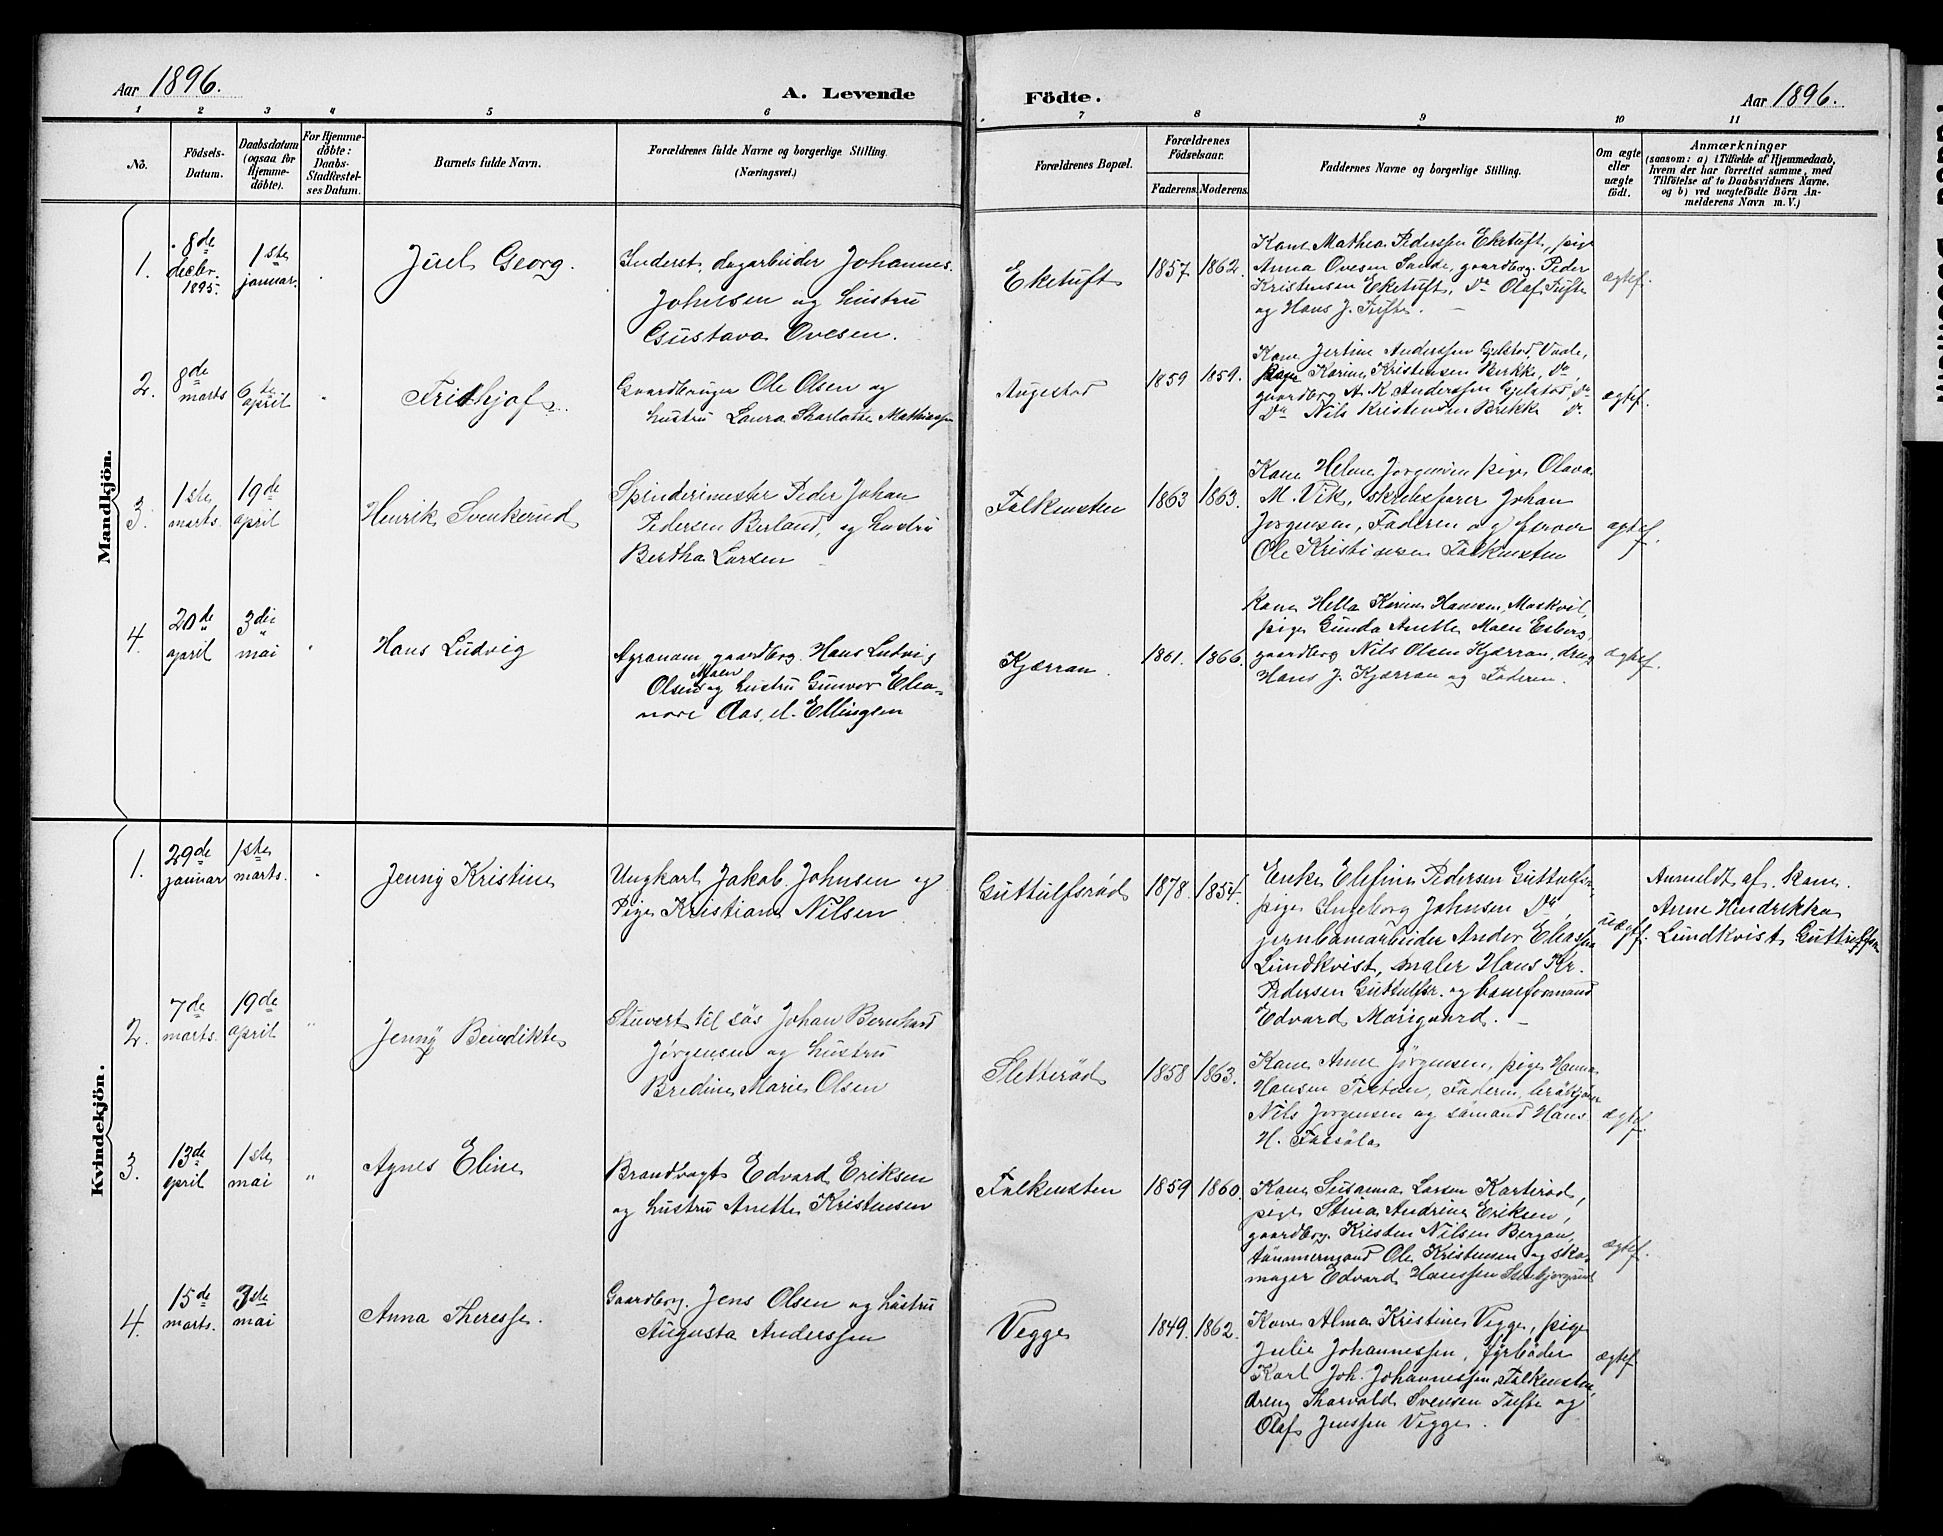 Aar 1896.
A. Levende
Födte.
Aar 1896.
1 2 3 4 5 6 7 8 9 10 11
No.
Födsels-
Datum.
Daabsdatum
(ogsaa for
Hjemme-
döbte).
For Hjemme-
döbte:
Daabs-
Stadfæstel-
ses Datum.
Barnets fulde Navn.
Forældrenes fulde Navne og borgerlige Stilling.
(Næringsvei.)
Forældrenes Bopæl.
Forældrenes
Födselsaar.
Faderens. Moderens.
Faddernes Navne og borgerlige Stilling.
Om ægte
eller
uægte
födt.
Anmærkninger
(saasom: a) i Tilfælde af Hjemmedaab,
hvem der har forrettet samme, med
Tilföielse af to Daabsvidners Navne.
og b) ved uægtefödte Börn An-
melderens Navn m. V.)
Mandkjön.
1.
8de
decbr.
1895.
1ste
januar.
Juel Georg.
Inderst, dagarbeider Johannes
Johnsen og hustru
Gustava Ovesen.
Eketuft
1857 1862.
Kone Mathea Pederssen Eketuft, pige
Anna Ovesen Sande, gaardbrg. Peder
Kristensen Eketuft, Do Olaf Tufte
og Hans J. Tufte.
ægtef.
2.
8de
marts
6te
april
Fridthjof.
Gaardbruger Ole Olsen og
hustru Laura Sharlotte Mathiassen
Augestad
1859 1859.
Kone Jertine Anderssen Gjelstad, Vaale,
Karine Kristensen Brekke, Do,
gaardbrg A. K. Anderssen Gjelstad, Do
Do Nils Kristensen Brekke Do
ægtef.
3.
1ste
marts.
19de
april
Henrik Svenkerud
Spinderimester Peder Johan
Pedersen Berland, og hustru
Bertha Larsen
Falkensten
1863 1863.
Kone Helene Jorgensen pige Olava
M. Vik, Johan
Jorgensen, Faderen og
Ole Kristiansen Falkensten
ægtef.
4.
20de
april
3die
mai
Hans Ludvig
Agronom gaardbrg. Hans Ludvig
Moen
Olsen og hustru Gunvor Eleo-
nore Aas, d. Ellingsen
Kjærran
1861. 1866.
Kone Hella Karine Hansen, Moskvil,
pige Gunda Anette Moen Esberg
gaardbrg Nils Olsen Kjærran, dreng
Hans J. Kjærran og Faderen.
ægtef.
Kvindekjön.
1.
29de
januar
1ste
marts.
Jenny Kristine
Ungkarl Jakob Johnsen og
Pige Kristiane Nilsen
Guttulfsröd
1878. 1854.
Enke Elefine Pedersen Guttulfsr,
pige Ingeborg Johnsen Do,
jernbanearbeider Ander Eliassen
Lundkvist, maler Hans Kr.
Pedersen Guttulfsr. og baneformand
Edvard Morigaard.
uægtef.
Anmeldt af kone
Anne Hendrikka
Lundkvist Guttulfsrö
2.
7de
marts.
19de
april
Jenny Benedikte
Stuvert til sös Johan Bernhard
Jørgensen og hustru
Bredine Marie Olsen
Sletteröd
1858 1863.
Kone Anne Jörgensen, pige Hanna
Hansen Faderen,
Nils Jorgensen og sömand Hans
H.
ægtef.
3.
13de
april
1ste
mai
Agnes Eline
Brandvagt Edvard Eriksen
og hustru Anette Kristensen
Falkensten
1859 1860.
Kone Susanna Larsen Karteröd,
pige Stina Andrine Eriksen,
gaardbrg. Kristen Nilsen Bergan,
tömmermand Ole Kristensen og sko-
mager Edvard Hanssen
ægtef.
4.
15de
marts.
3die
mai
Anna Theresse.
Gaardbrg. Jens Olsen og hustru
Augusta Anderssen
Vegge
1849. 1862.
Kone Alma Kristine Vegge, pige
Julie Johannessen, fyrböder
Karl Joh. Johannessen, Falkensten,
dreng Thorvald Svensen Tufte og
Olaf Jenssen Vegge.
ægtef.